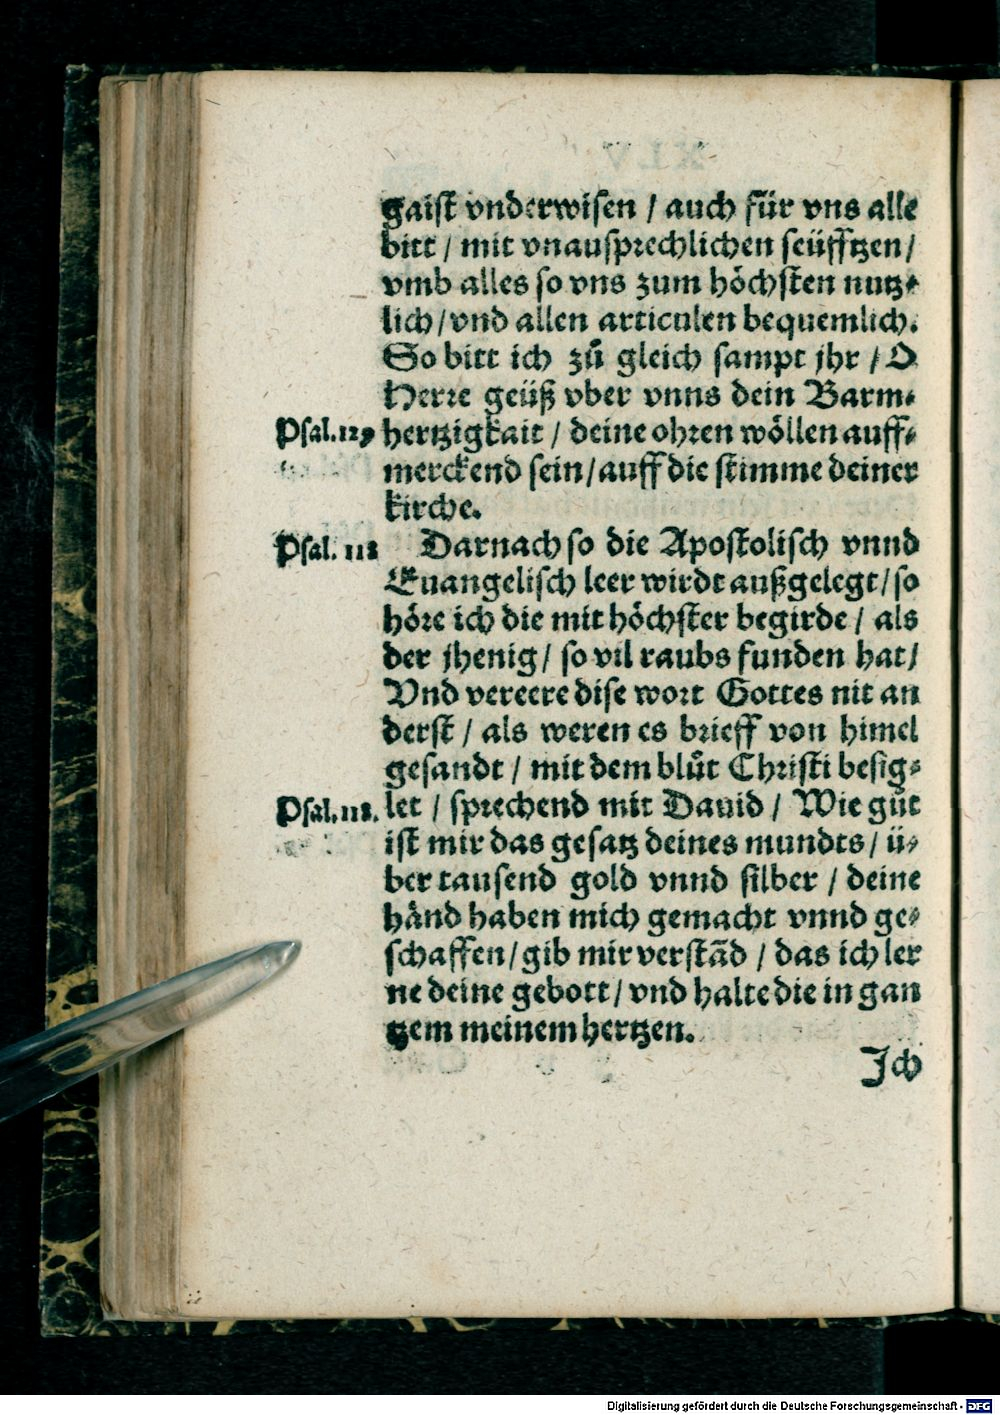 gaist vnderwisen / auch für vns alle
bitt / mit vnausprechlichen seüfftzen /
vmb alles so vns zum höchsten nutz⸗
lich / vnd allen articulen bequemlich.
So bitt ich zů gleich sampt jhr / O
Herre geüß vber vnns dein Barm⸗
Psal. 129 hertzigkait / deine ohren wöllen auff⸗
merckend sein / auff die stimme deiner
kirche.
Psal. 118 Darnach so die Apostolisch vnnd
Euangelisch leer wirdt außgelegt / so
höre ich die mit höchster begirde / als
der jhenig / so vil raubs funden hat /
Vnd vereere dise wort Gottes nit an
derst / als weren es brieff von himel
gesandt / mit dem blůt Christi besig⸗
Psal. 118. let / sprechend mit Dauid / Wie gůt
ist mir das gesatz deines mundts / ü⸗
ber tausend gold vnnd silber / deine
händ haben mich gemacht vnnd ge⸗
schaffen / gib mir verstãd / das ich ler
ne deine gebott / vnd halte die in gan
tzem meinem hertzen.
Ich
Digitalisierung gefördert durch die Deutsche Forschungsgemeinschaft - DFG